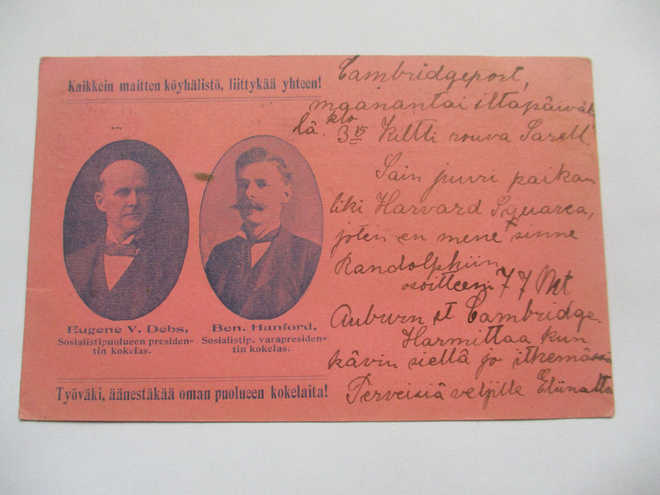 Kaikkein maitten köyhälistö, liittykää yhteen!
Eugene V. Debs,
Sosialistipuolueen presiden-
tin kokelas.
Ben. Hanford,
Sosialistip. varapresiden-
tin kokelas.
Työväki, äänestäkää oman puolueen kokelaita!
Cambridgeport,
maanantai iltapäiväl
lä. klo
3 15 Kiltti rouva
Sain juuri paikan
liki Harvard Squarea,
joten en mene sinne
Randolphiin
osoitteeni 77 Mt
Auburn st Cambridge.
Harmittaa kun
kävin siellä jo itkemässä
Terveisiä veljille